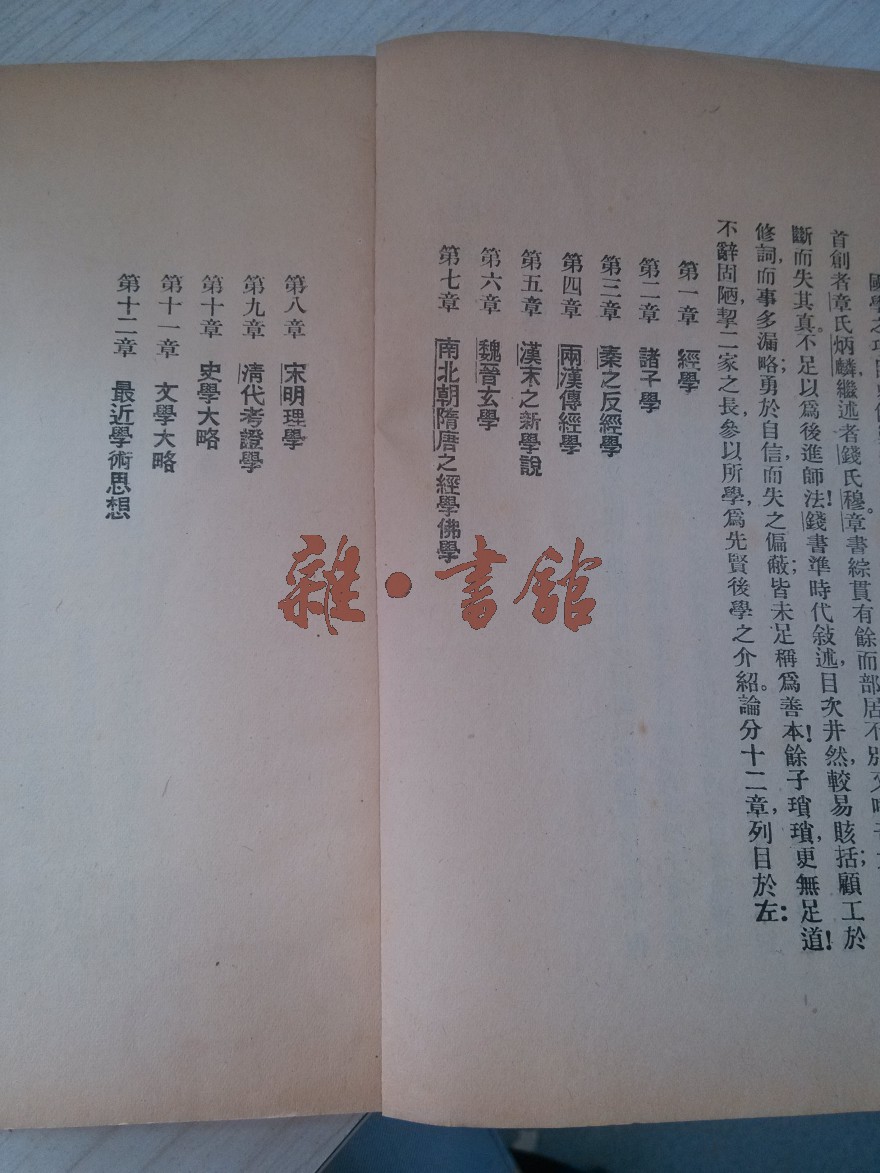 國學之
首創者章氏炳麟,繼述者錢氏穆。章書綜貫有餘而部居不別,文
斷而失其真。不足以爲後進師法!錢書準時代敍述,目次井然,較易賅括;顧工於
修詞,而事多漏略;勇於自信,而失之偏蔽;皆未足稱爲善本!餘子瑣瑣,更無足道!
不辭固陋,挈二家之長,參以所學,爲先賢後學之介紹。論分十二章,列目於左:
第一章 經學
第二章 諸子學
第三章 秦之反經學
第四章 兩漢傳經學
第五章 漢末之新學說
第六章 魏晉玄學
第七章 南北朝隋唐之經學佛學
第八章 宋明理學
第九章 清代考證學
第十章 史學大略
第十一章 文學大略
第十二章 最近學術思想
雜·書館